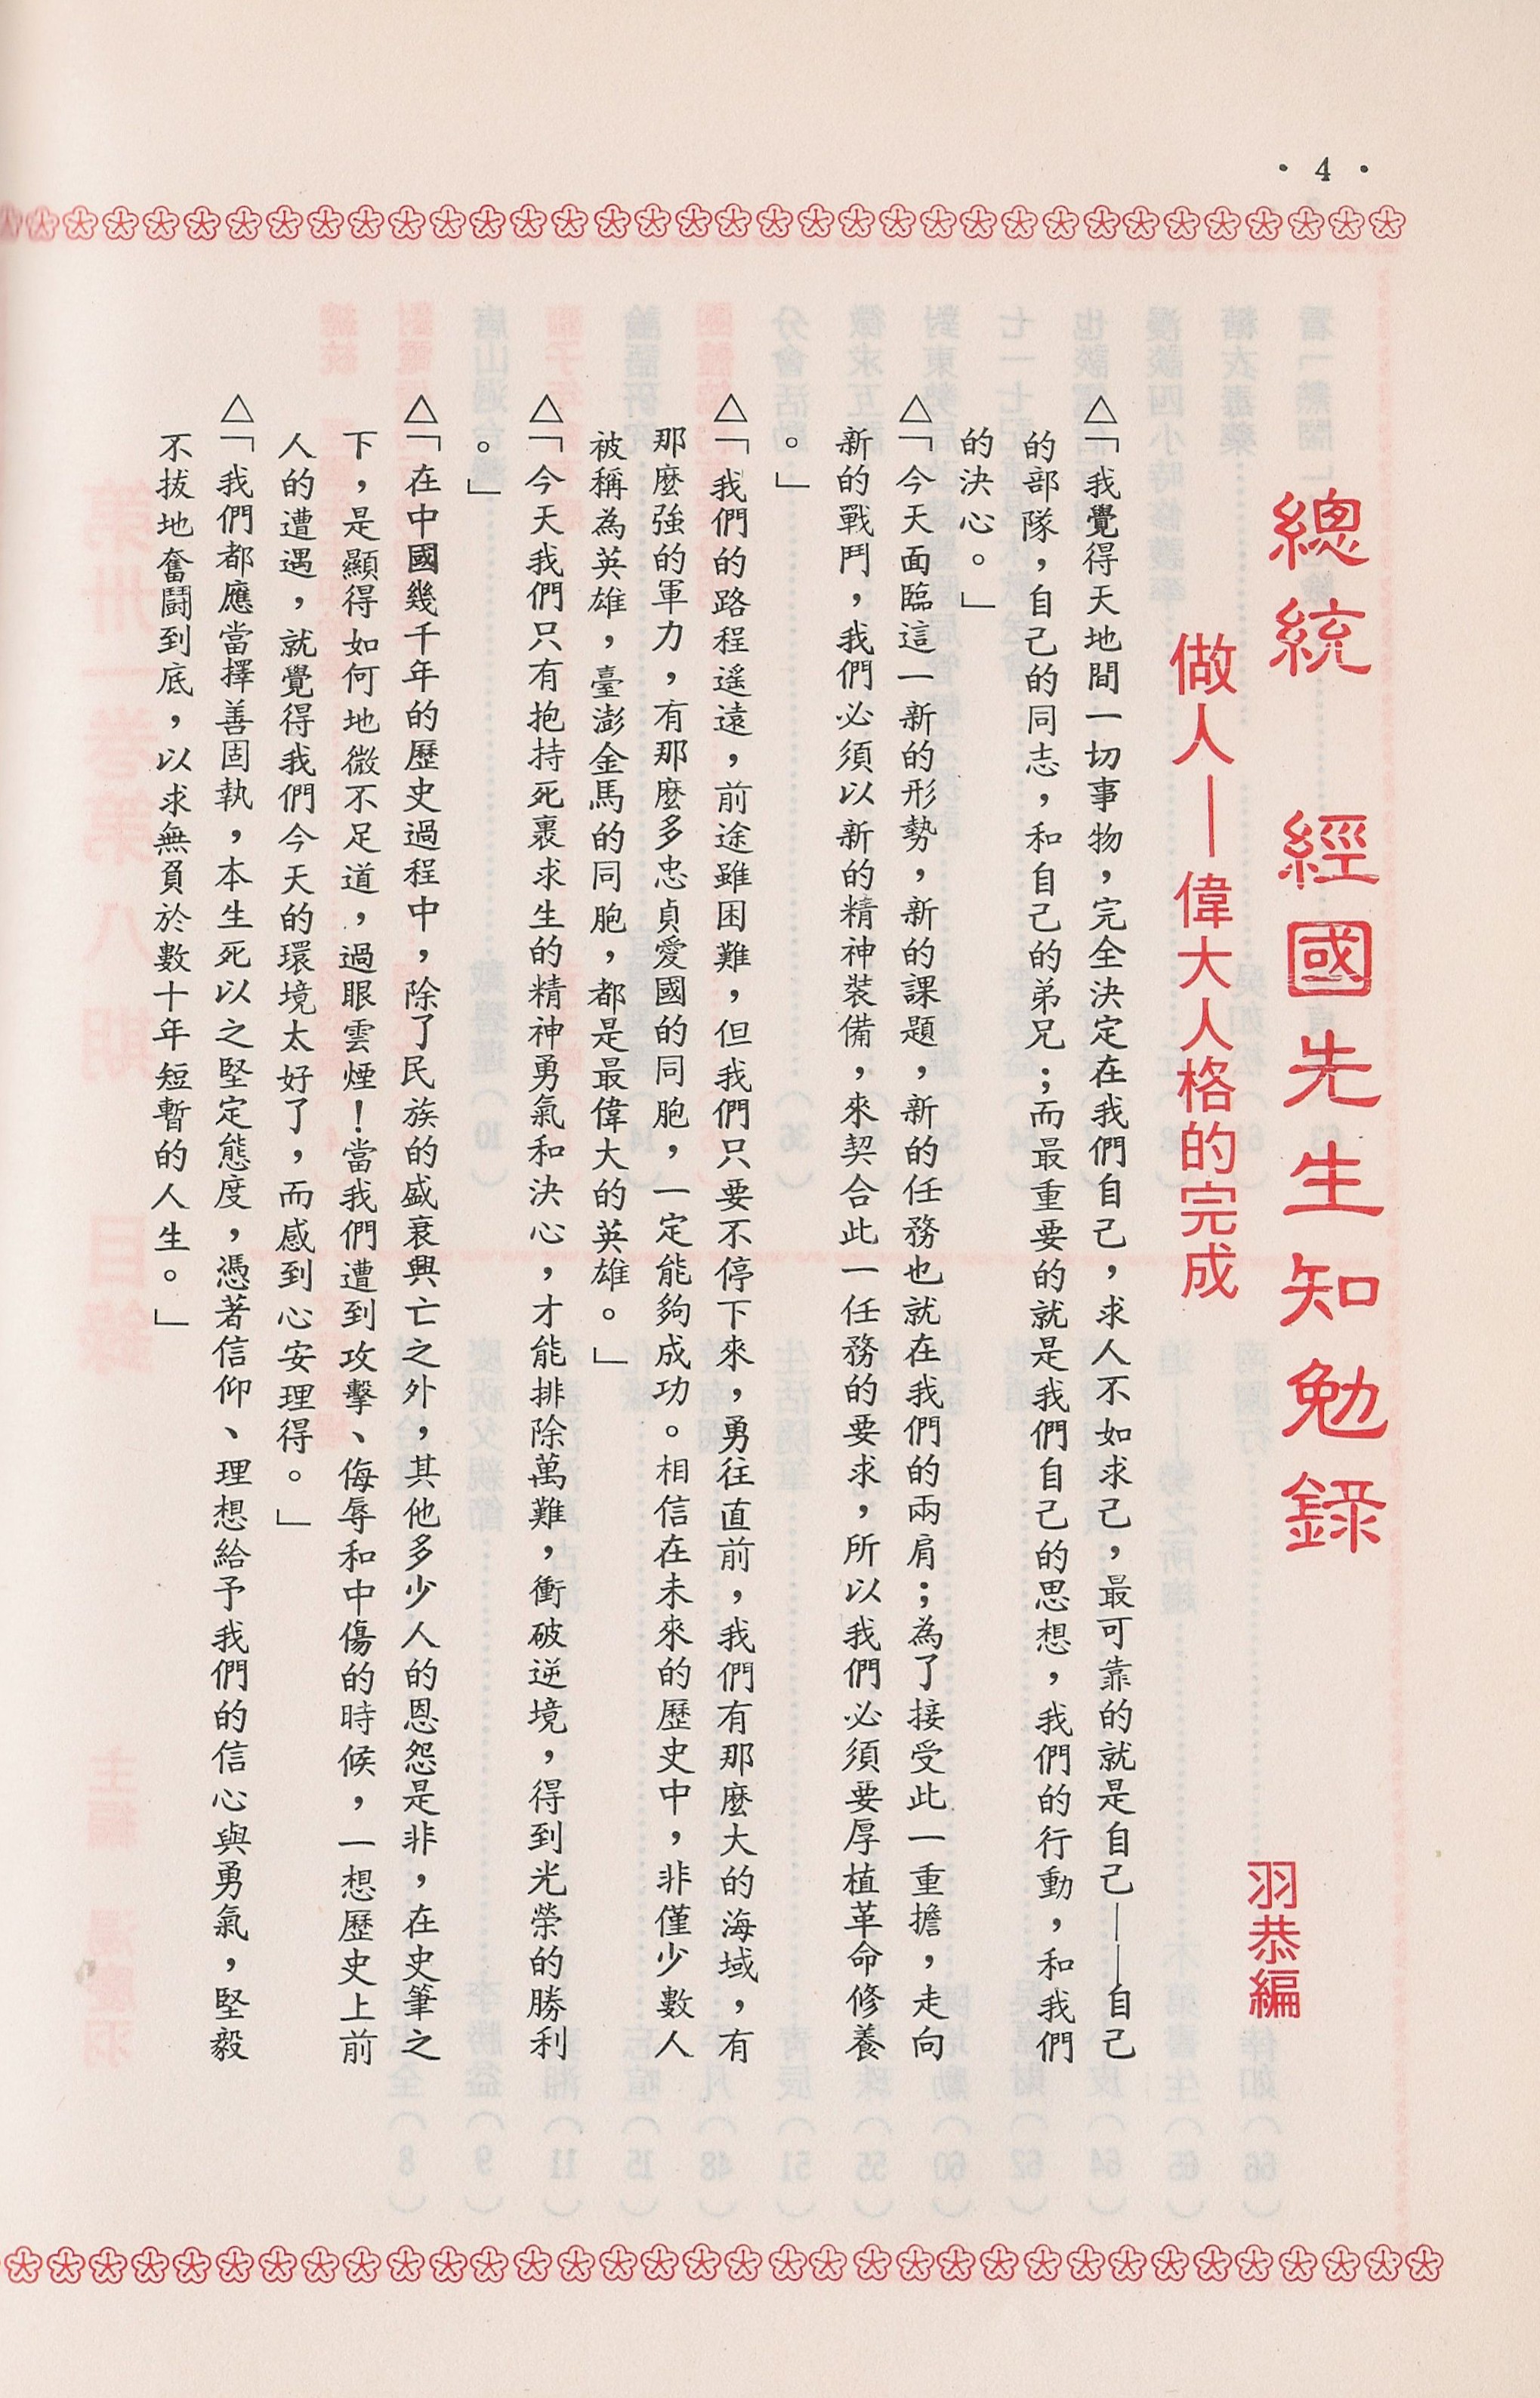 • 4 •
總統 經國先生知勉錄
做人——偉大人格的完成
羽恭編
△「我覺得天地間一切事物，完全決定在我們自己，求人不如求己，最可靠的就是自己——自己
的部隊，自己的同志，和自己的弟兄；而最重要的就是我們自己的思想，我們的行動，和我們
的決心。」
△「今天面臨這一新的形勢，新的課題，新的任務也就在我們的兩肩；為了接受此一重擔，走向
新的戰鬥，我們必須以新的精神裝備，來契合此一任務的要求，所以我們必須要厚植革命修養
。」
△「我們的路程遙遠，前途雖困難，但我們只要不停下來，勇往直前，我們有那麼大的海域，有
那麼強的軍力，有那麼多忠貞愛國的同胞，一定能夠成功。相信在未來的歷史中，非僅少數人
被稱為英雄，臺澎金馬的同胞，都是最偉大的英雄。」
△「今天我們只有抱持死裏求生的精神勇氣和決心，才能排除萬難，衝破逆境，得到光榮的勝利
。」
△「在中國幾千年的歷史過程中，除了民族的盛衰興亡之外，其他多少人的恩怨是非，在史筆之
下，是顯得如何地微不足道，過眼雲煙！當我們遭到攻擊、侮辱和中傷的時候，一想歷史上前
人的遭遇，就覺得我們今天的環境太好了，而感到心安理得。」
△「我們都應當擇善固執，本生死以之堅定態度，憑著信仰、理想給予我們的信心與勇氣，堅毅
不拔地奮鬪到底，以求無負於數十年短暫的人生。」